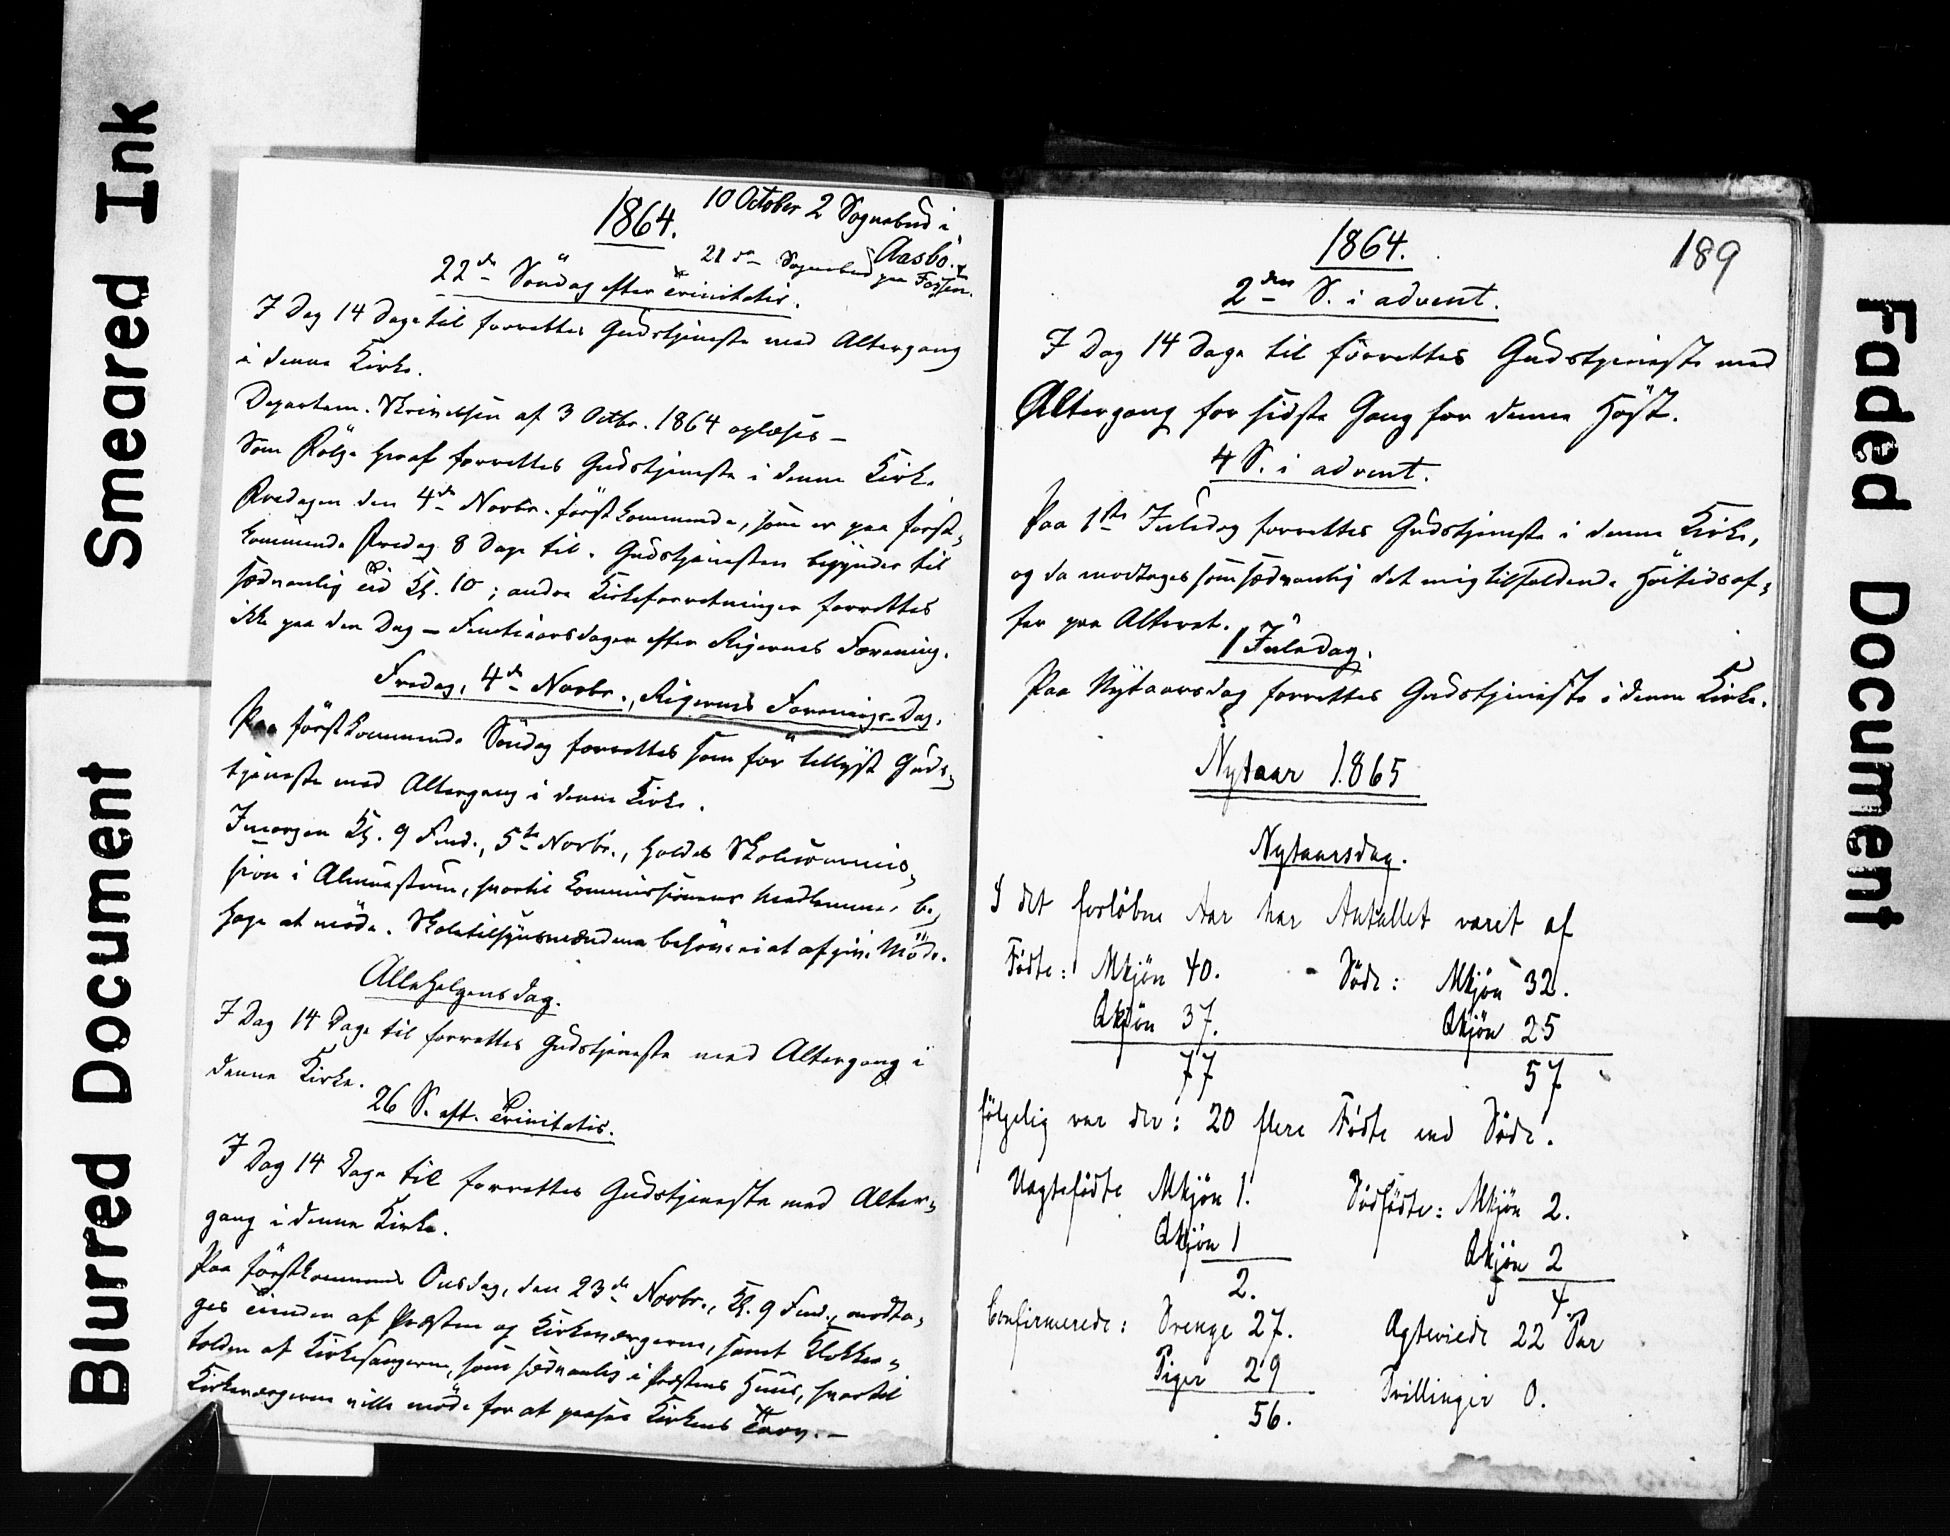 Smeared Ink
Blurred Document
Faded Document
1864.
10 October 2 Sognebud i
Aasbö.
21 de Sognebud paa Fossen.
22de Söndag efter Trinitatis.
I Dag 14 Dage til forrettes Gudstjeneste med Altergang
i denne Kirke.
Departem. Skrivelsen af 3 Octbr. 1864 oplæses –
Som Fölge heraf forrettes Gudstjeneste i denne Kirke
Fredagen den 4de Novbr. förstkommende, som er paa först-
kommende Fredag 8 Dage til. Gudstjenesten begynder til
sædvanlig Tid Kl. 10; andre Kirkeforretninger forrettes
ikke paa den Dag – Rigernes Forening.
Fredag, 4de Novbr., Rigernes Forenings-Dag.
Paa förstkommende Söndag forrettes som för tillyst Guds-
tjeneste med Altergang i denne Kirke.
Imorgen Kl. 9 Fmd., 5te Novbr., holdes Skolecommis-
sion i Almuestuen, hvortil Commissionens Medlemmer be-
hage at möde. Skoletilsynsmændene behöve ei at afgive Möde.
Allehelgensdag.
I Dag 14 Dage til forrettes Gudstjeneste med Altergang i
denne Kirke.
26 S. eft. Trinitatis.
I Dag 14 Dage til forrettes Gudstjeneste med Alter-
gang i denne Kirke.
Paa förstkommende Onsdag, den 23de Novbr., Kl. 9 Fmd., modta-
ges Tienden af Præsten og Kirkeværgerne, samt Klokker-
tolden af Kirkesangeren, som sædvanlig i Præstens Huus, hvortil
Kirkeværgerne ville möde for at paasee Kirkens Tarv. –
1864.
189
2den S. i advent.
I Dag 14 Dage til forrettes Gudstjeneste med
Altergang for sidste Gang for denne Höst.
4 S. i advent.
Paa 1ste Juledag forrettes Gudstjeneste i denne Kirke,
og da modtages som sædvanlig det mig tilfaldende Höitidsof-
fer paa Alteret.
1 Juledag.
Paa Nytaarsdag forrettes Gudstjeneste i denne Kirke.
Nytaar 1865
Nytaarsdag.
I det forløbne Aar har Antallet været af
Fødte: Mkjön 40. Döde: Mkjön 32.
Qkjön 37. Qkjön 25
77 57
følgelig var der: 20 flere Födte end Döde.
Uægtefödte Mkjön 1. Dödfödte: Mkjön 2.
Qkjön 1 Qkjön 2
2. 4.
Confirmerede: Drenge 27. Ægteviede 22 Par
Piger 29 Tvillinger 0.
56.